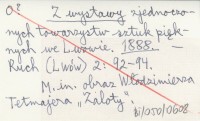 Z wystawy zjednoczo-
nych towarzystw sztuk pięk-
nych we Lwowie. 1888. —
Ruch (Lwów) 2: 92-94.
M.in. obraz Włodzimierza
Tetmajera „Zaloty”.
bi/050/0608